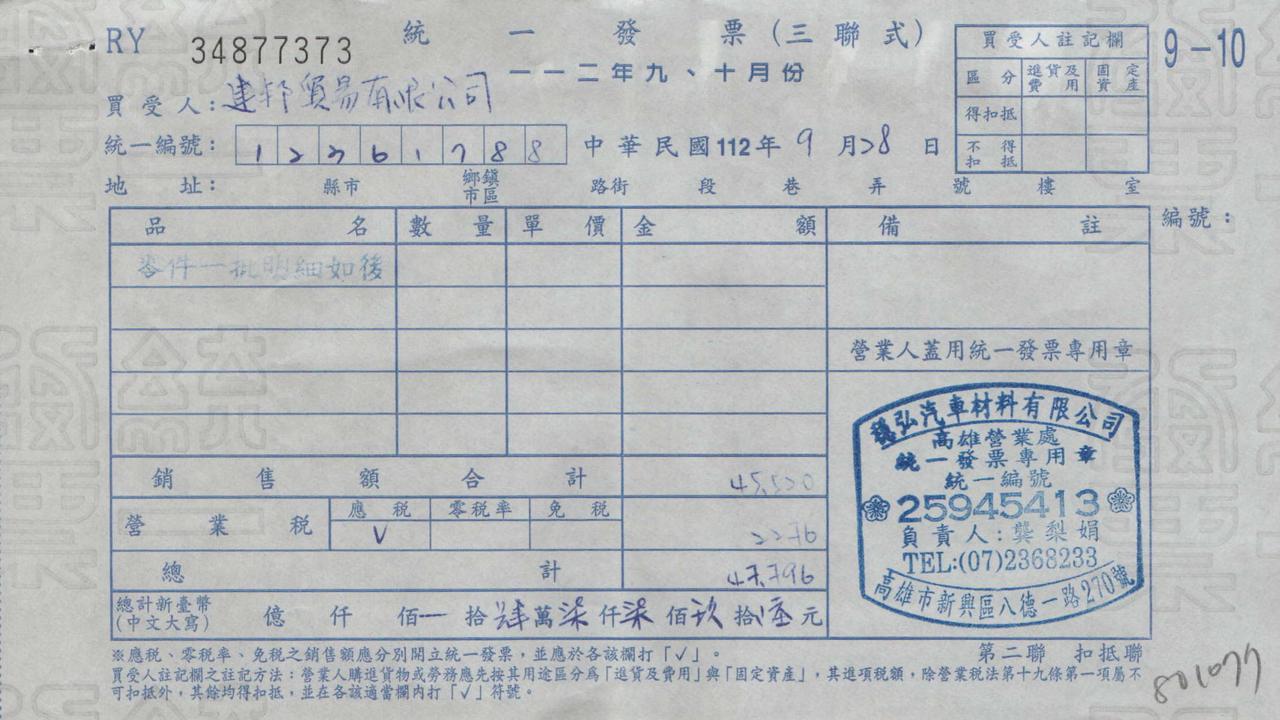 RY 34877373 統一發票(三聯式) 9-10
一一二年九、十月份
買受人:建邦貿易有限公司
統一編號: 12261788 中華民國112年9月28日
地址: 縣市 鄉鎮市區 路街 段 巷 弄 號 樓 室
買受人註記欄
區分 進貨及費用 固定資產
得扣抵
不得扣抵
編號:
品名 數量 單價 金額 備註
零件一批明細如後
營業人蓋用統一發票專用章
銷售額合計 45,520
營業稅 應稅 零稅率 免稅
V 2276
總計 47,796
總計新臺幣(中文大寫) 億 仟 佰 一 拾 肆 萬 柒 仟 柒 佰 玖 拾 元
弘汽車材料有限公司
高雄營業處
統一發票專用章
統一編號
25945413
負責人:龔梨娟
TEL:(07)2368233
高雄市新興區八德一路270號
※應稅、零稅率、免稅之銷售額應分別開立統一發票,並應於各該欄打「√」。
第二聯 扣抵聯
買受人註記欄之註記方法:營業人購進貨物或勞務應先按其用途區分為「進貨及費用」與「固定資產」,其進項稅額,除營業稅法第十九條第一項屬不
可扣抵外,其餘均得扣抵,並在各該適當欄內打「√」符號。
801077